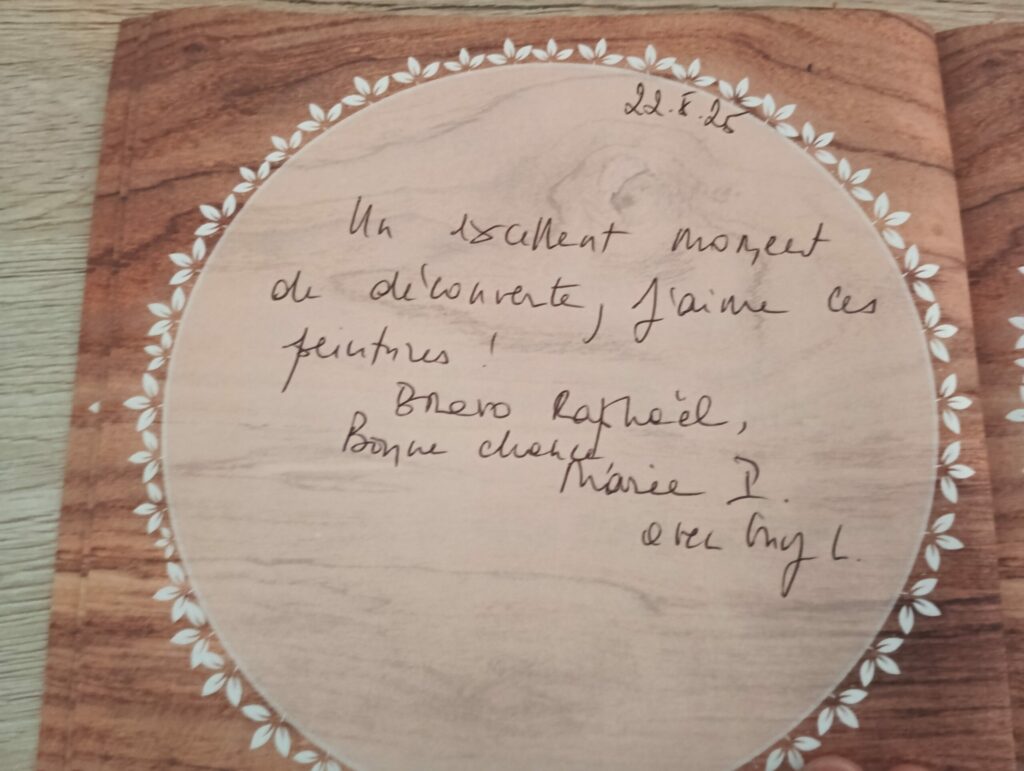 22.8.25
Un excellent moment
de découverte, j'aime ces
peintures !
Bravo Raphaël,
Bonne chance
Marie D.
avec Guy L.